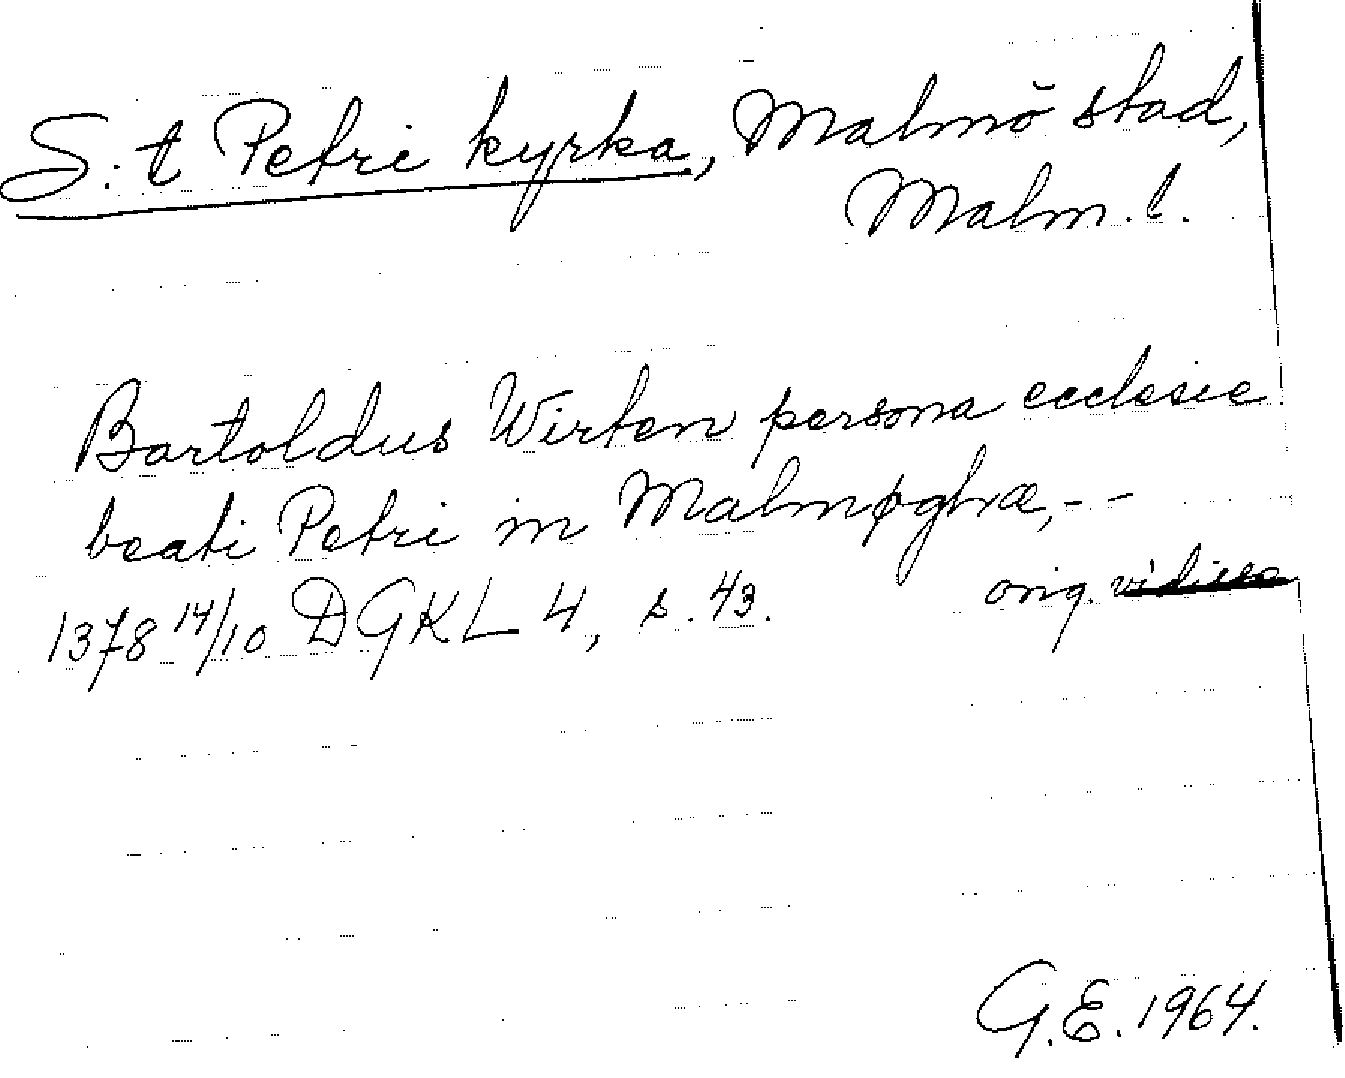 S:t Petri kyrka, Malmö stad,
Malm. l.
Bartoldus Wirten persona ecclesie
beati Petri in Malmøghæ, - -
1378 14/10 DGKL 4, s. 43. orig.
G.E. 1964.